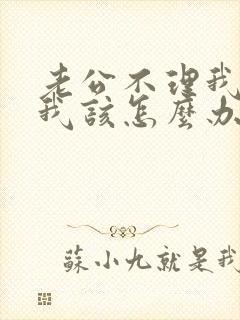 老公不理我
我該怎麼办
蘇小九就是我